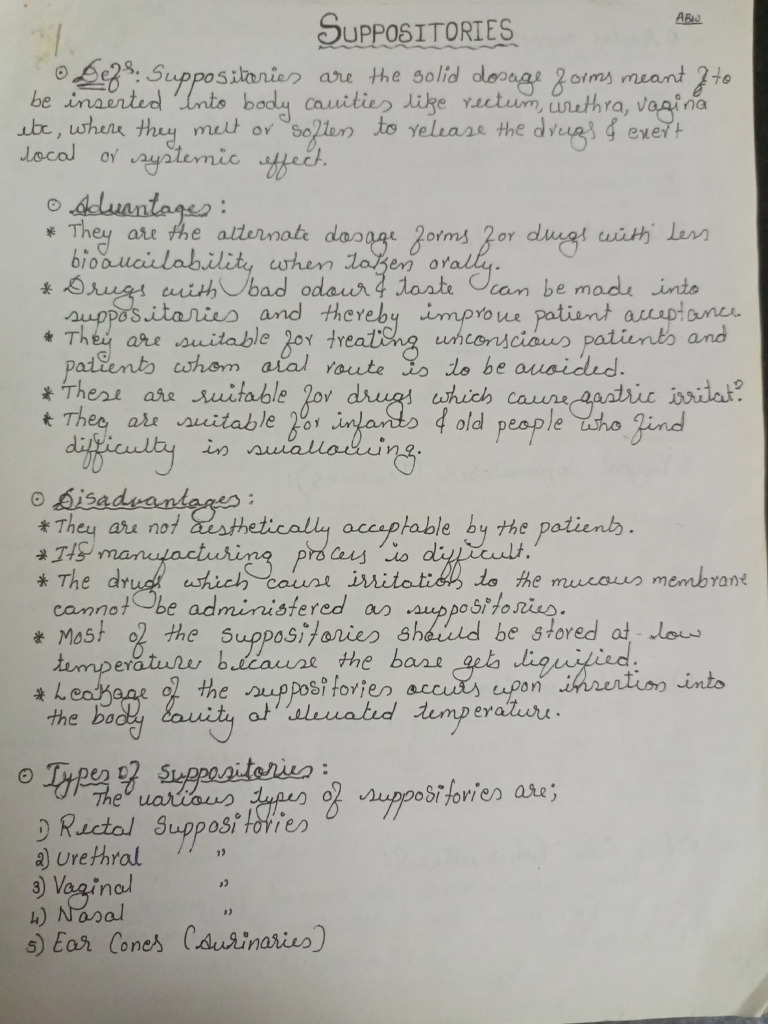 ABW
SUPPOSITORIES
⊙ Defⁿ: Suppositories are the solid dosage forms meant to
be inserted into body cavities like rectum, urethra, vagina
etc, where they melt or soften to release the drugs & exert
local or systemic effect.
⊙ Advantages:
* They are the alternate dosage forms for drugs with less
bioavailability when taken orally.
* Drugs with bad odour & taste can be made into
suppositories and thereby improve patient acceptance.
* They are suitable for treating unconscious patients and
patients whom oral route is to be avoided.
* These are suitable for drugs which cause gastric irritatⁿ.
* They are suitable for infants & old people who find
difficulty in swallowing.
⊙ Disadvantages:
* They are not aesthetically acceptable by the patients.
* Its manufacturing process is difficult.
* The drugs which cause irritation to the mucous membrane
cannot be administered as suppositories.
* Most of the suppositories should be stored at low
temperature because the base gets liquified.
* Leakage of the suppositories occurs upon insertion into
the body cavity at elevated temperature.
⊙ Types of Suppositories:
The various types of suppositories are;
1) Rectal Suppositories
2) Urethral "
3) Vaginal "
4) Nasal "
5) Ear Cones (Aurinaries)